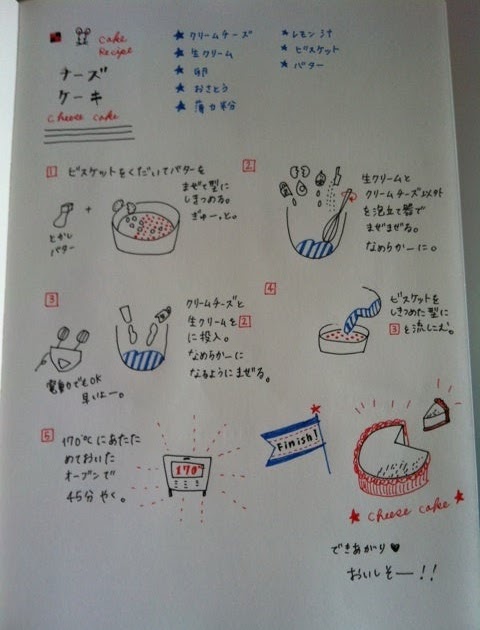 cake
Recipe
チーズ
ケーキ
cheese cake
★ クリームチーズ
★ 生クリーム
★ 卵
★ おさとう
★ 薄力粉
★ レモン汁
★ ビスケット
★ バター
1 ビスケットをくだいてバターを
まぜて型に
しきつめる。
ぎゅーっと。
+
とかし
バター
2
生クリームと
クリームチーズ以外
を泡立て器で
まぜまぜる。
なめらかーに。
3
クリームチーズと
生クリームを2
に投入。
なめらかーに
なるようにまぜる。
電動でもOK
早いよー。
4
ビスケットを
しきつめた型に
3を流しこむ。
5
170℃にあたた
めておいた
オーブンで
45分やく。
170°
Finish!
★ cheese cake ★
できあがり♥
おいしそー!!